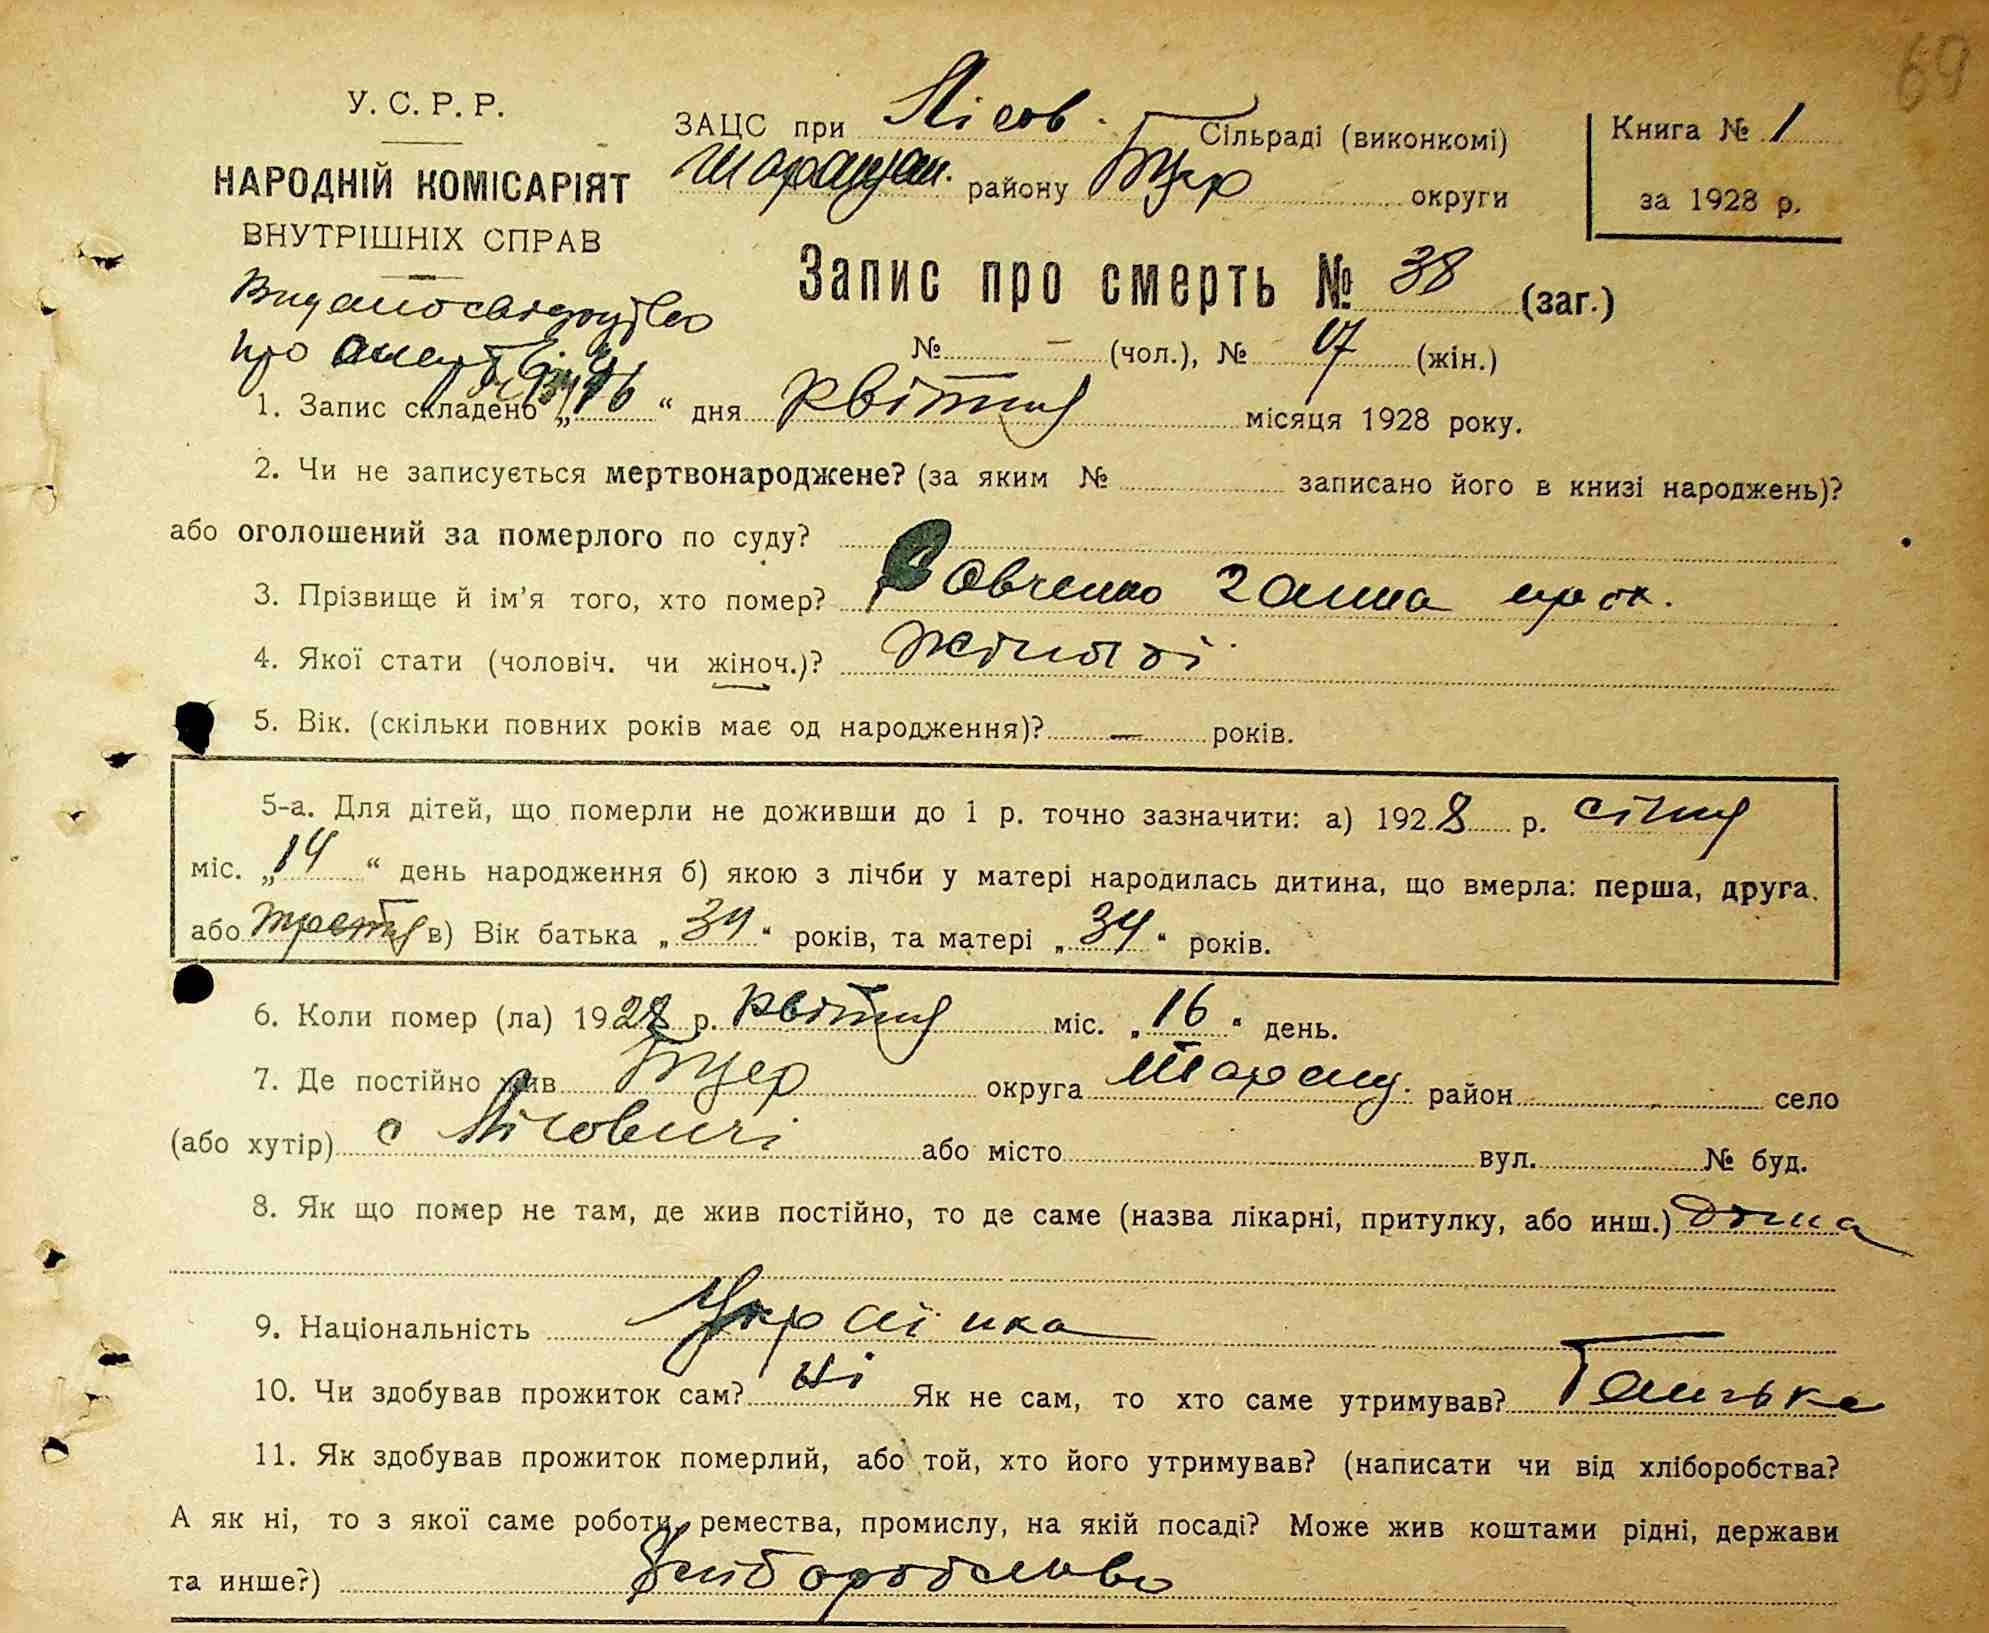 69
У. С. Р. Р.
НАРОДНІЙ КОМІСАРІЯТ
ВНУТРІШНІХ СПРАВ
Видано свідоцтво
про смерть
ЗАЦС при Лісов. Сільраді (виконкомі)
Таращан. району Бцер округи
Книга № 1
за 1928 р.
Запис про смерть № 38 (заг.)
№ – (чол.), № 17 (жін.)
1. Запис складено „16“ дня квітня місяця 1928 року.
2. Чи не записується мертвонароджене? (за яким № записано його в книзі народжень)?
або оголошений за померлого по суду?
3. Прізвище й ім’я того, хто помер? Савченко Ганна
4. Якої стати (чоловіч. чи жіноч.)? жіночі
5. Вік. (скільки повних років має од народження)? – років.
5-а. Для дітей, що померли не доживши до 1 р. точно зазначити: а) 1928 р. січня
міс. „14“ день народження б) якою з лічби у матері народилась дитина, що вмерла: перша, друга.
або третя в) Вік батька „34“ років, та матері „34“ років.
6. Коли помер (ла) 1928 р. квітня міс. „16“ день.
7. Де постійно жив Бцер округа Таращ. район село
(або хутір) с Лісовичі або місто вул. № буд.
8. Як що помер не там, де жив постійно, то де саме (назва лікарні, притулку, або инш.) дома
9. Національність Українка
10. Чи здобував прожиток сам? ні Як не сам, то хто саме утримував? Батько
11. Як здобував прожиток померлий, або той, хто його утримував? (написати чи від хліборобства?
А як ні, то з якої саме роботи, ремества, промислу, на якій посаді? Може жив коштами рідні, держави
та инше?) Хліборобство